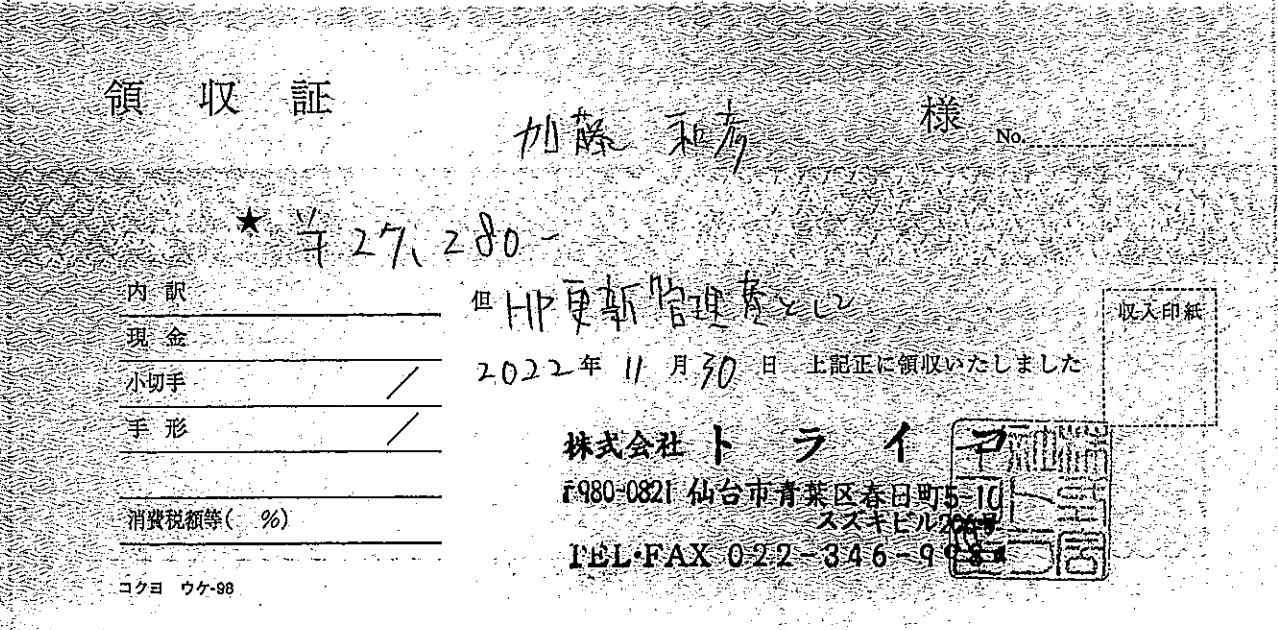 領収証
加藤 和彦 様 No.
★ ¥27,280-
内訳
現金
小切手 /
手形 /
消費税額等( %)
但 HP更新管理費として
2022年 11月 30日 上記正に領収いたしました
収入印紙
株式会社 トライ
〒980-0821 仙台市青葉区春日町5-10
スズキビル
TEL・FAX 022-346-
コクヨ ウケ-98